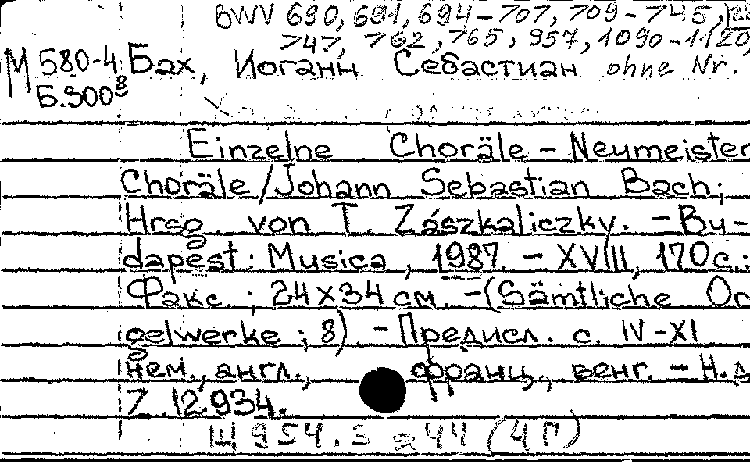 BWV 690, 691, 694-707, 709-745,
747, 762, 765, 957, 1090-1120,
М 580-4 Бах, Иоганн Себастиан ohne Nr.
Б.300⁸
Einzelne Choräle - Neumeister
Choräle / Johann Sebastian Bach;
Hrsg. von T. Zászkaliczky. - Bu-
dapest: Musica, 1987. - XVIII, 170с.:
Факс.; 24x34 см. - (Sämtliche Or
gelwerke; 8). - Предисл. с. IV-XI
нем., англ., франц., венг. - Н.д
Z.12934.
Ш 954.3 244 (4П)